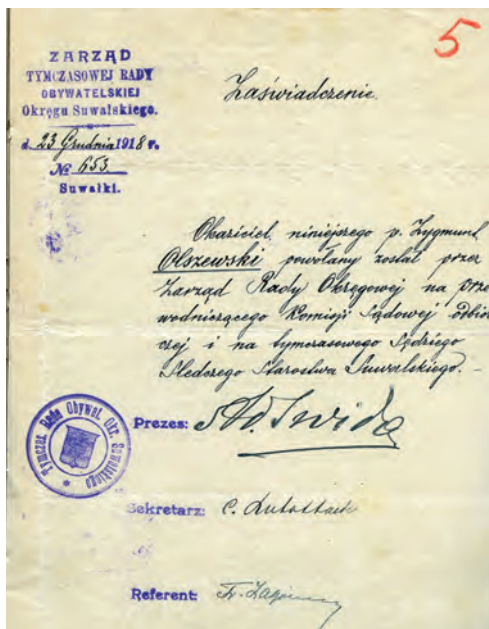 5
ZARZĄD
TYMCZASOWEJ RADY
OBYWATELSKIEJ
Okręgu Suwalskiego.
d. 23 Grudnia 1918 r.
№ 653
Suwałki.
Zaświadczenie.
Okaziciel niniejszego p. Zygmunt
Olszewski powołany został przez
Zarząd Rady Okręgowej na prze
wodniczącego Komisji Sądowej odbior
czej i na tymczasowego Sędziego
Śledczego Starostwa Suwalskiego. -
Prezes: Świda
Tymczas. Rada Obywat. Okr. Suwalskiego
Sekretarz: C.
Referent: Fr.